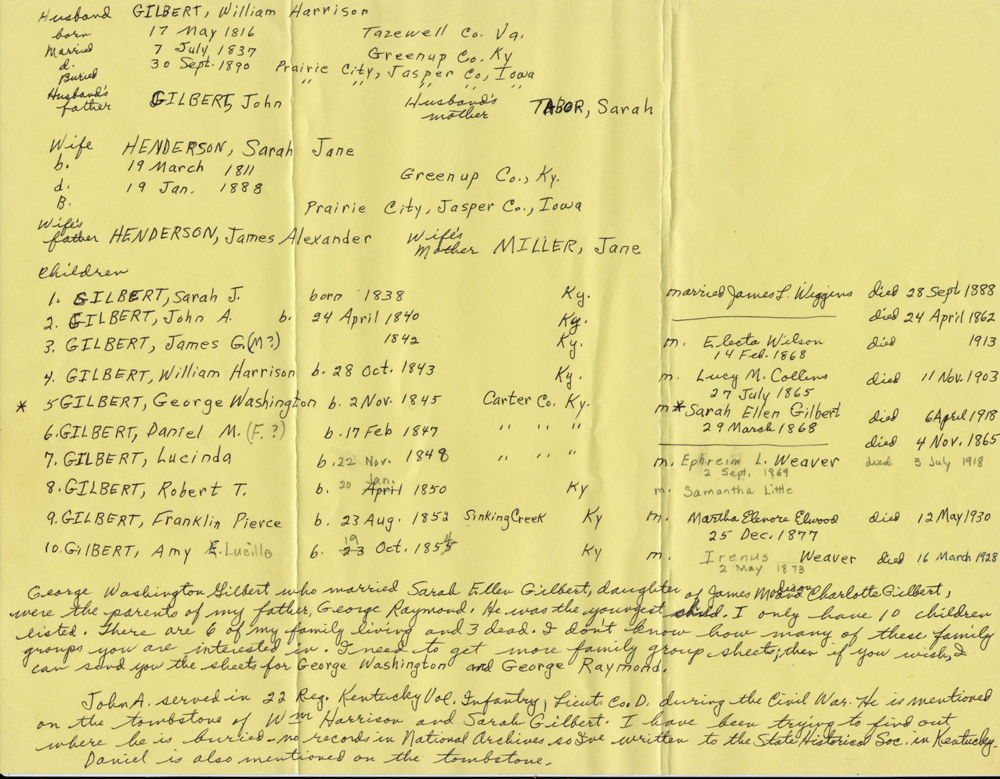 Husband GILBERT, William Harrison
born 17 May 1816 Tazewell Co. Va.
Married 7 July, 1837 Greenup Co. Ky
d. 30 Sept. 1890 Prairie City, Jasper Co, Iowa
Buried " " " "
Husband's father GILBERT, John Husband's mother TABOR, Sarah
Wife HENDERSON, Sarah Jane
b. 19 March 1811 Greenup Co., Ky.
d. 19 Jan. 1888
B. Prairie City, Jasper Co., Iowa
Wife's father HENDERSON, James Alexander Wife's Mother MILLER, Jane
Children
1. GILBERT, Sarah J. born 1838 Ky. married James L. Wiggins died 28 Sept 1888
2. GILBERT, John A. b. 24 April 1840 Ky. died 24 April 1862
3. GILBERT, James G. (M?) 1842 Ky. m. Electa Wilson died 1913
14 Feb. 1868
4. GILBERT, William Harrison b. 28 Oct. 1843 Ky. m. Lucy M. Collins died 11 Nov. 1903
27 July 1865
* 5 GILBERT, George Washington b. 2 Nov. 1845 Carter Co. Ky. m * Sarah Ellen Gilbert died 6 April 1918
29 March 1868
6. GILBERT, Daniel M. (F.?) b. 17 Feb 1847 " " " died 4 Nov. 1865
7. GILBERT, Lucinda b. 22 Nov. 1848 " " " m. Ephreim L. Weaver died 3 July 1918
2 Sept. 1869
8. GILBERT, Robert T. b. 20 Jan. April 1850 Ky m. Samantha Little
9. GILBERT, Franklin Pierce b. 23 Aug. 1852 Sinking Creek Ky m. Martha Elenore Elwood died 12 May 1930
25 Dec. 1877
10. GILBERT, Amy E. Lucille b. 19 23 Oct. 1854 Ky m. Irenus Weaver died 16 March 1928
2 May 1873
George Washington Gilbert who married Sarah Ellen Gilbert, daughter of James Madison Charlotte Gilbert,
were the parents of my father, George Raymond. He was the youngest child. I only have 10 children
listed. There are 6 of my family living and 3 dead. I don't know how many of these family
groups you are interested in. I need to get more family group sheets; then if you wish, I
can send you the sheets for George Washington and George Raymond.
John A. served in 22 Reg. Kentucky Vol. Infantry, Lieut. Co. D. during the Civil War. He is mentioned
on the tombstone of Wm Harrison and Sarah Gilbert. I have been trying to find out
where he is buried - no records in National Archives so I've written to the State Historical Soc. in Kentucky.
Daniel is also mentioned on the tombstone.